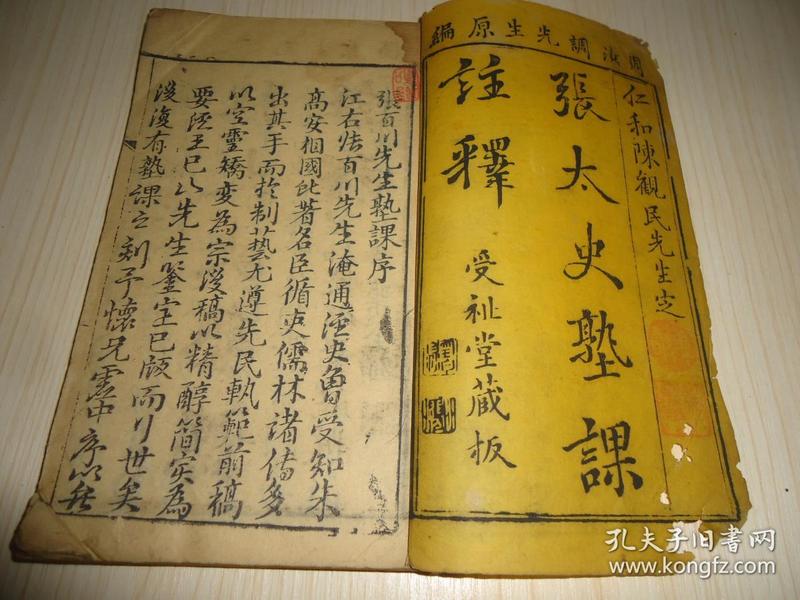 調先生原編
仁和陳觀民先生定
張太史塾課
註釋
受祉堂藏板
張百川先生塾課序
江右張百川先生淹通經史曾受知朱
高安相國此著名臣循吏儒林諸傳多
出其手而於制藝尤遵先民軌範前稿
以空靈矯變為宗後稿以精醇簡实為
要陸王已以先生鑒定已版而行世矣
後復有塾課之刻予懷兄雲中序以
孔夫子旧书网
www.kongfz.com